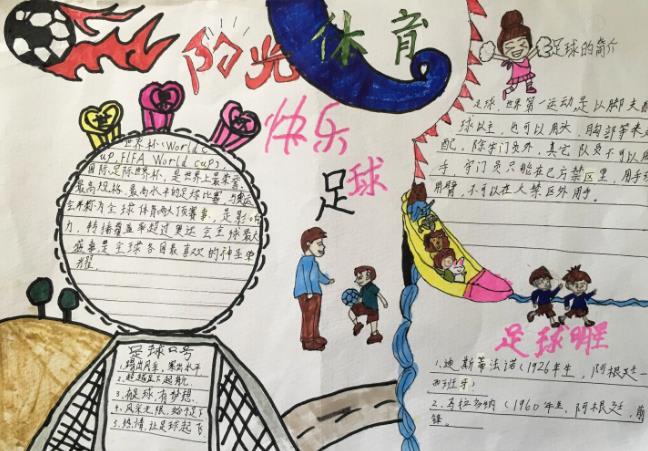 阳光体育
快乐
足球
世界杯
世界杯(World C
up,FIFA World cup)
国际足际世界杯,是世界上最荣誉、
最高规格、最高水平的足球比赛,与奥运
会并称为全球体育两大顶赛事,是影响
力、转播覆盖率超过奥运会全球最大
盛事是全球各国最喜欢的神圣荣
耀。
足球口号
1.踢出风采,赛出水平
3.足球有梦想.
4.风采无限,始于足下
5.热情,让足球起飞
足球的简介
足球,世界第一运动是以脚支配
球以主,也可以用头、胸部等来支
配,除守门员外,其它队员不可以用
手,守门员只能在己方禁区里,用手或
用臂,不可以在人禁区外用手。
足球明星
1.迪斯蒂法诺(1926年生,阿根廷一
西班牙)
2.马拉多纳(1960年生,阿根廷,前
锋。